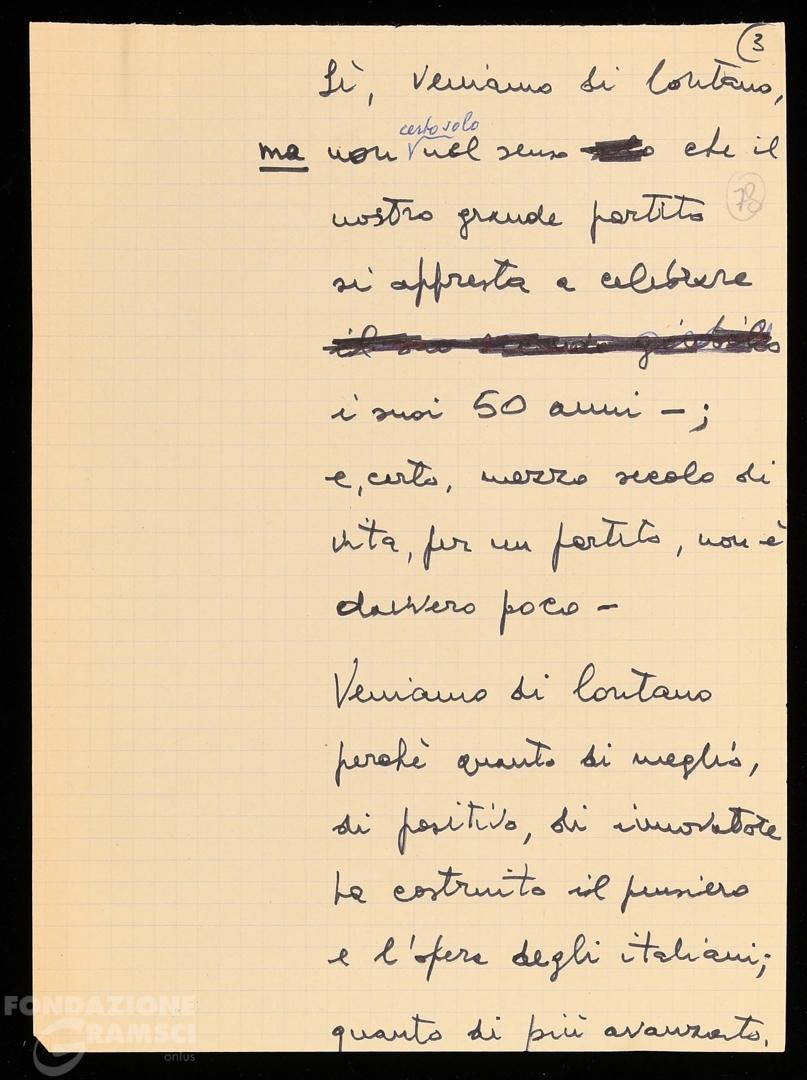 3
Sì, Veniamo di lontano,
certo solo
ma non nel senso che il
nostro grande partito
78
si appresta a celebrare
i suoi 50 anni – ;
e, certo, mezzo secolo di
vita, per un partito, non è
davvero poco –
Veniamo di lontano
perchè quanto di meglio,
di positivo, di innovatore
ha costruito il pensiero
e l'opera degli italiani;
quanto di più avanzato,
FONDAZIONE
GRAMSCI
onlus